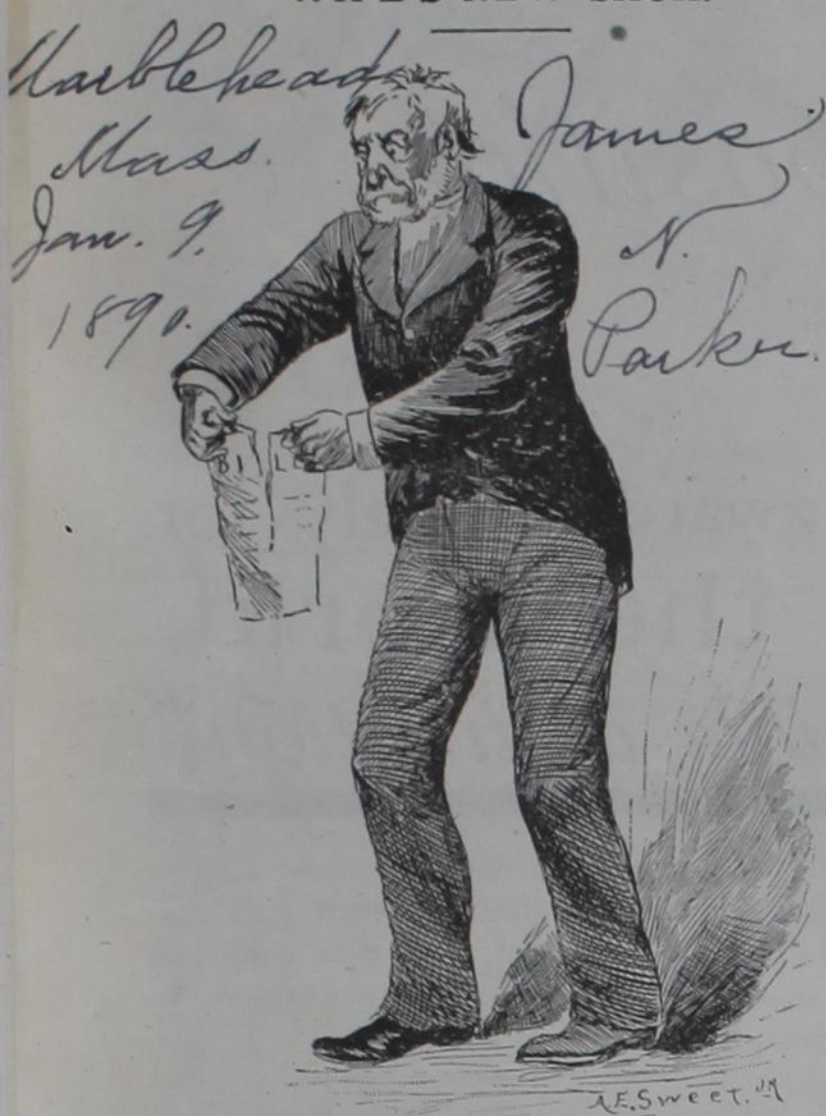 Marblehead
Mass.
Jan. 9.
1890.
James
N.
Parker.
BILL
A.E. Sweet. Jr